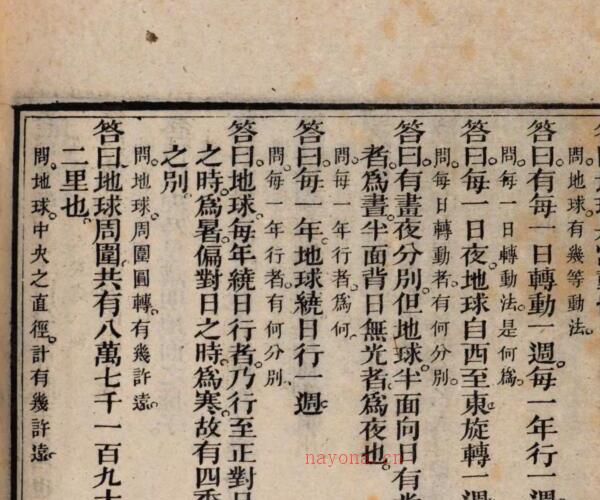 問地球有幾等動法
答曰有每一日轉動一週每一年行一週
問每一日轉動法是何爲
答曰每一日夜地球自西至東旋轉一週
問每日轉動者有何分別
答曰有晝夜分別但地球半面向日有光
者爲晝半面背日無光者爲夜也
問每一年行者爲何
答曰每一年地球繞日行一週
問每一年行者有何分別
答曰地球每年繞日行者乃行至正對日
之時爲暑偏對日之時爲寒故有四季
之別
問地球周圍圓轉有幾許遠
答曰地球周圍共有八萬七千一百九十
二里也
問地球中央之直徑計有幾許遠
nayona.cn